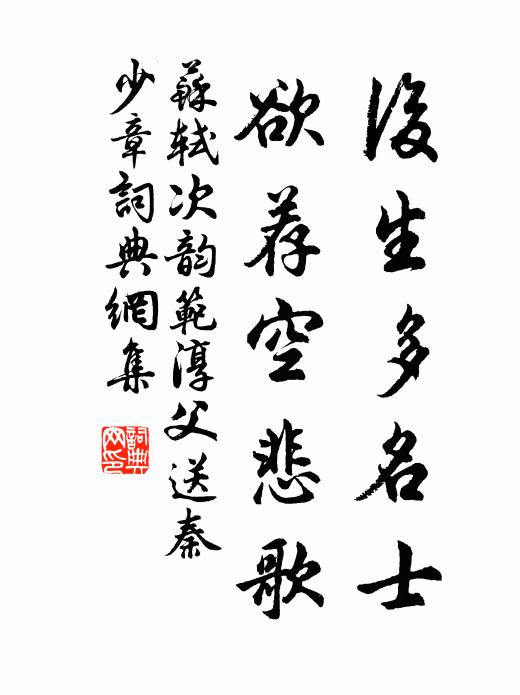 後生多名士
欲荐空悲歌
蘇軾次韵範淳父送秦
少章詞典網集
詞典
网印